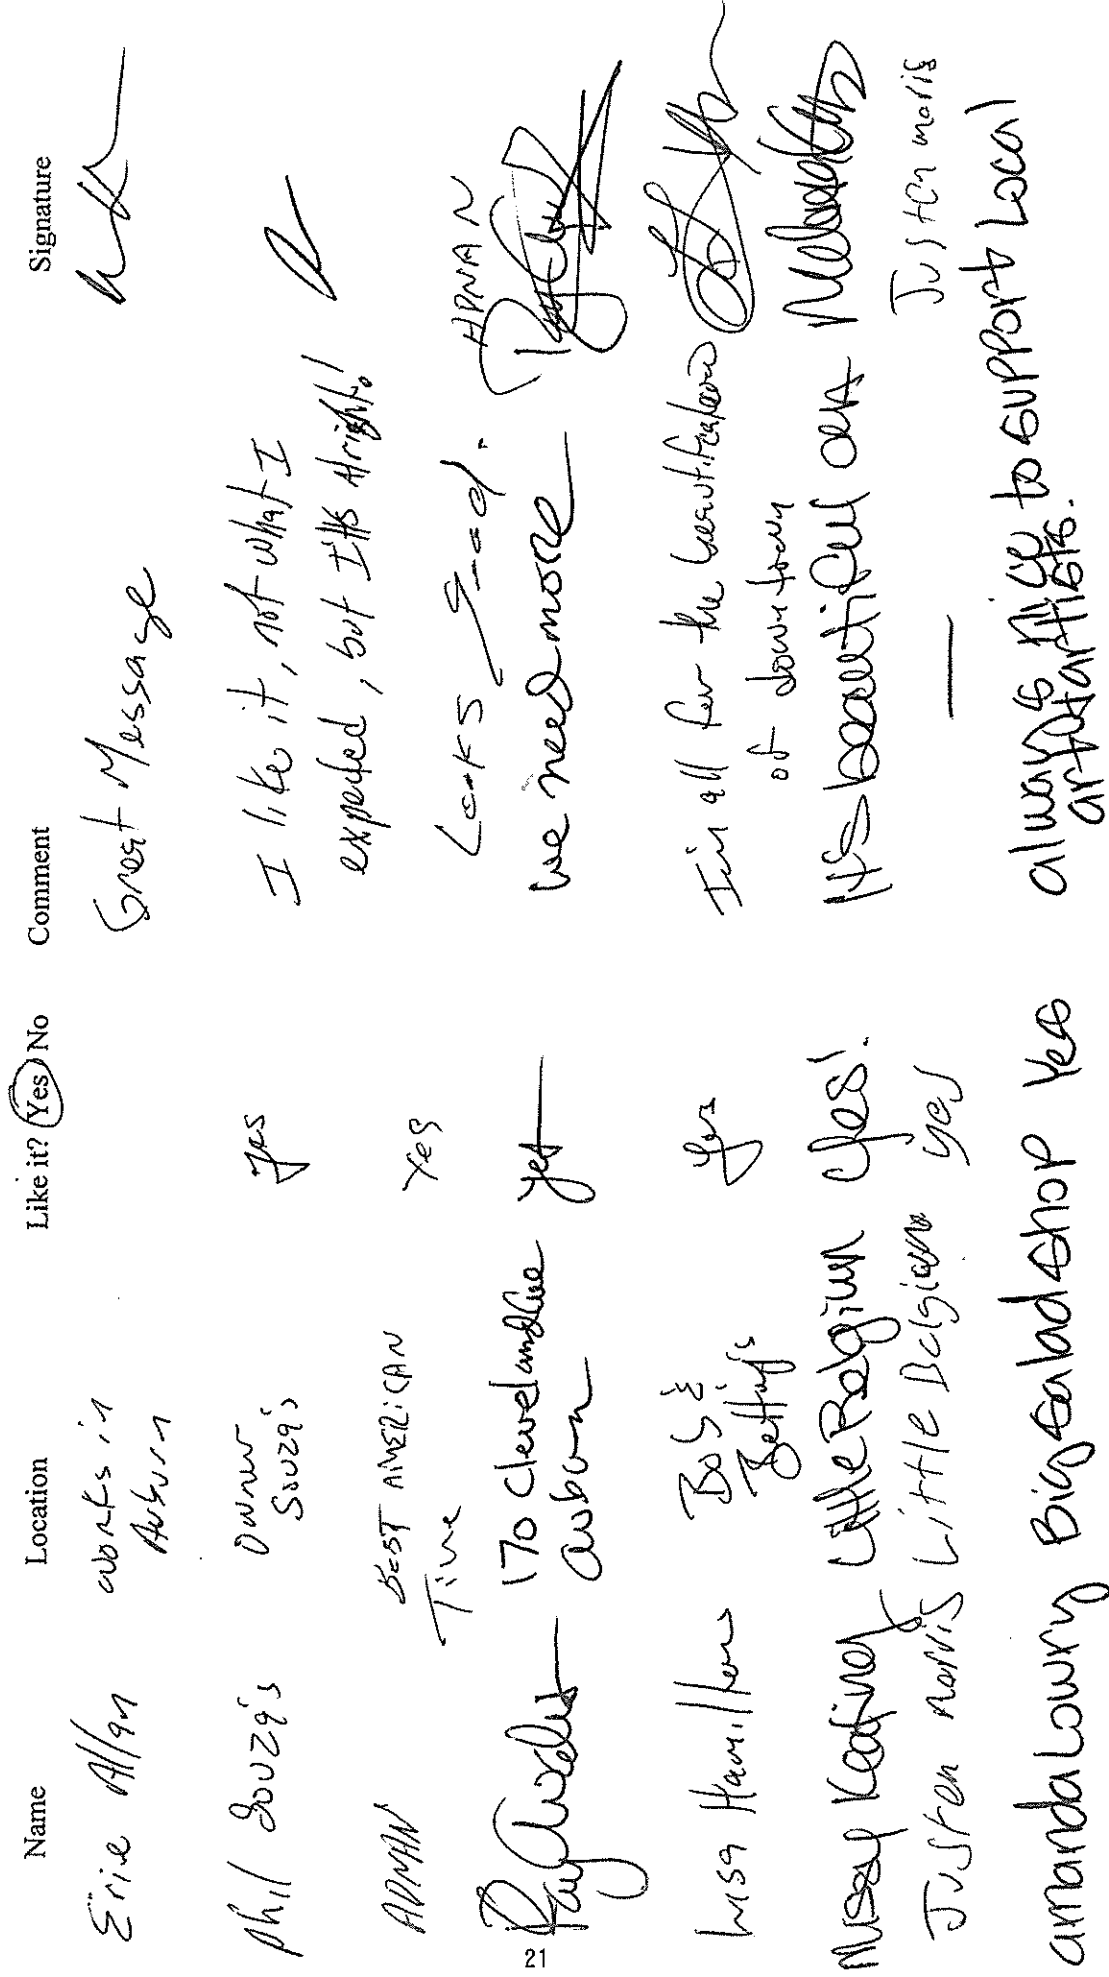 Name Location Like it? Yes No Comment Signature
Erie Allan works in Great Message
Auburn
phil Souza's owner yes I like it, not what I
Souza's expected, but It's Alright!
ADNAN BEST AMERICAN Yes Looks good. ADNAN
Time
170 Cleveland Ave yes we need more
auburn
Lisa Hamilton Bo's & yes I'm all for the beautification
of downtown
Missy Keating Little Belgium yes! It's beautiful art
Justen morris Little Belgian yes — Justen moris
amanda Lowry Big salad shop Yes always nice to support Local
art & artists.
21